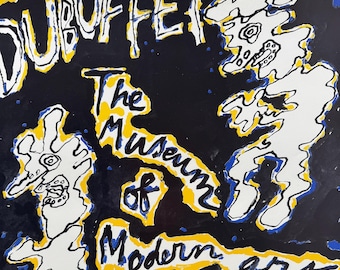 DUBUFFET
The
Museum
of
Modern Art